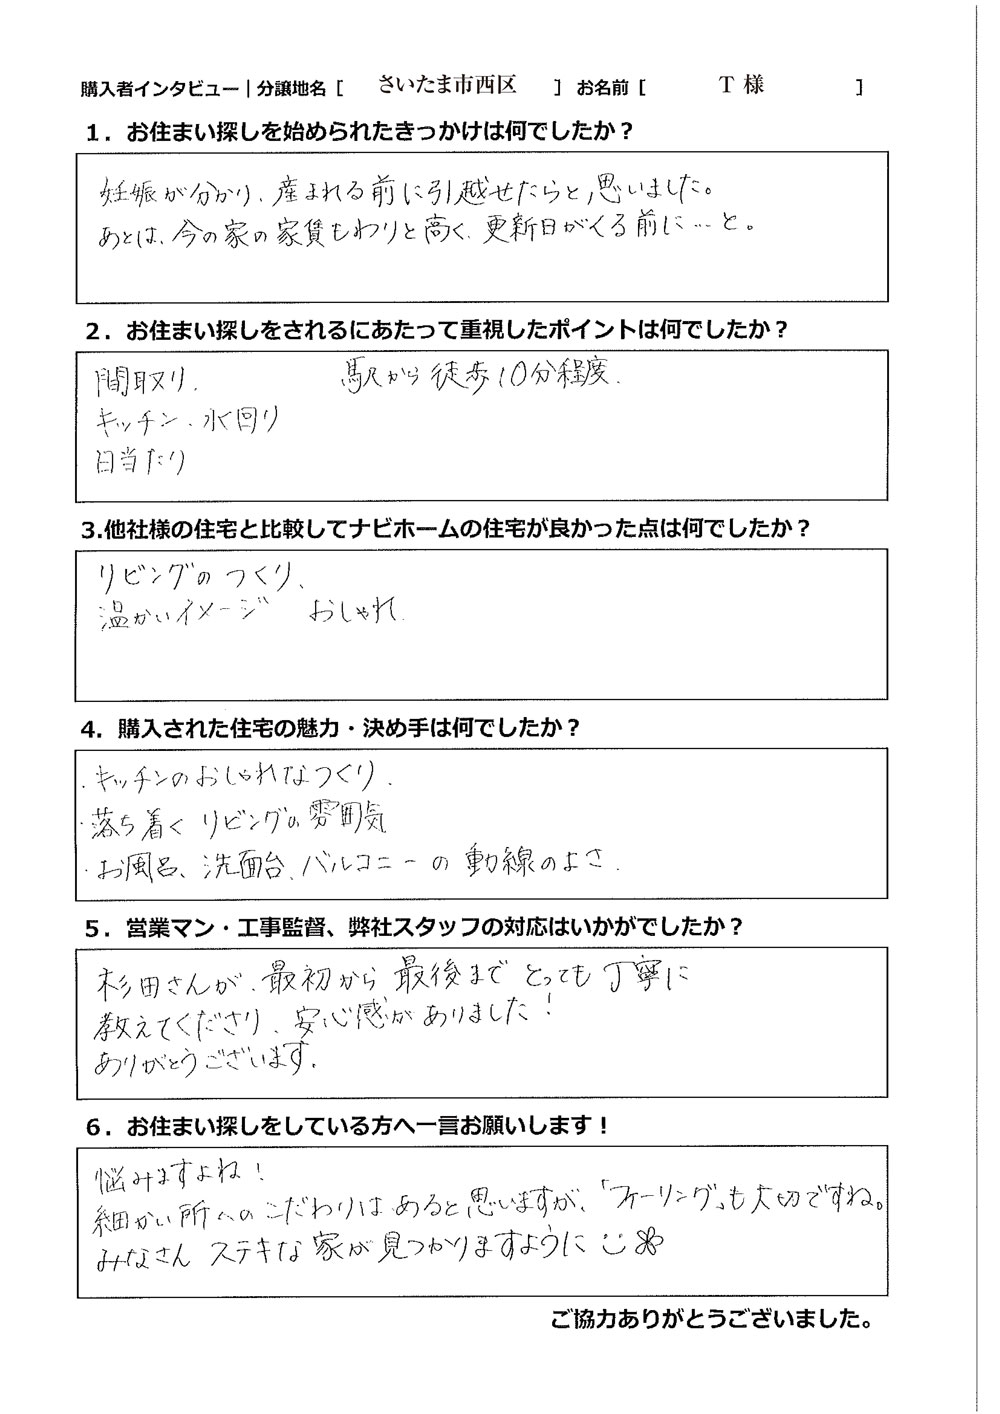 購入者インタビュー｜分譲地名［ さいたま市西区 ］ お名前［ T 様 ］
１．お住まい探しを始められたきっかけは何でしたか？
妊娠が分かり、産まれる前に引越せたらと思いました。
あとは、今の家の家賃もわりと高く、更新日がくる前に…と。
２．お住まい探しをされるにあたって重視したポイントは何でしたか？
間取り、 駅から徒歩10分程度.
キッチン、水回り
日当たり
３.他社様の住宅と比較してナビホームの住宅が良かった点は何でしたか？
リビングのつくり、
温かいイメージ おしゃれ.
４．購入された住宅の魅力・決め手は何でしたか？
・キッチンのおしゃれなつくり.
・落ち着くリビングの雰囲気
・お風呂、洗面台、バルコニーの動線のよさ.
５．営業マン・工事監督、弊社スタッフの対応はいかがでしたか？
杉田さんが、最初から最後までとっても丁寧に
教えてくださり、安心感がありました！
ありがとうございます.
６．お住まい探しをしている方へ一言お願いします！
悩みますよね！
細かい所へのこだわりはあると思いますが、「フィーリング」も大切ですね。
みなさんステキな家が見つかりますように
ご協力ありがとうございました。